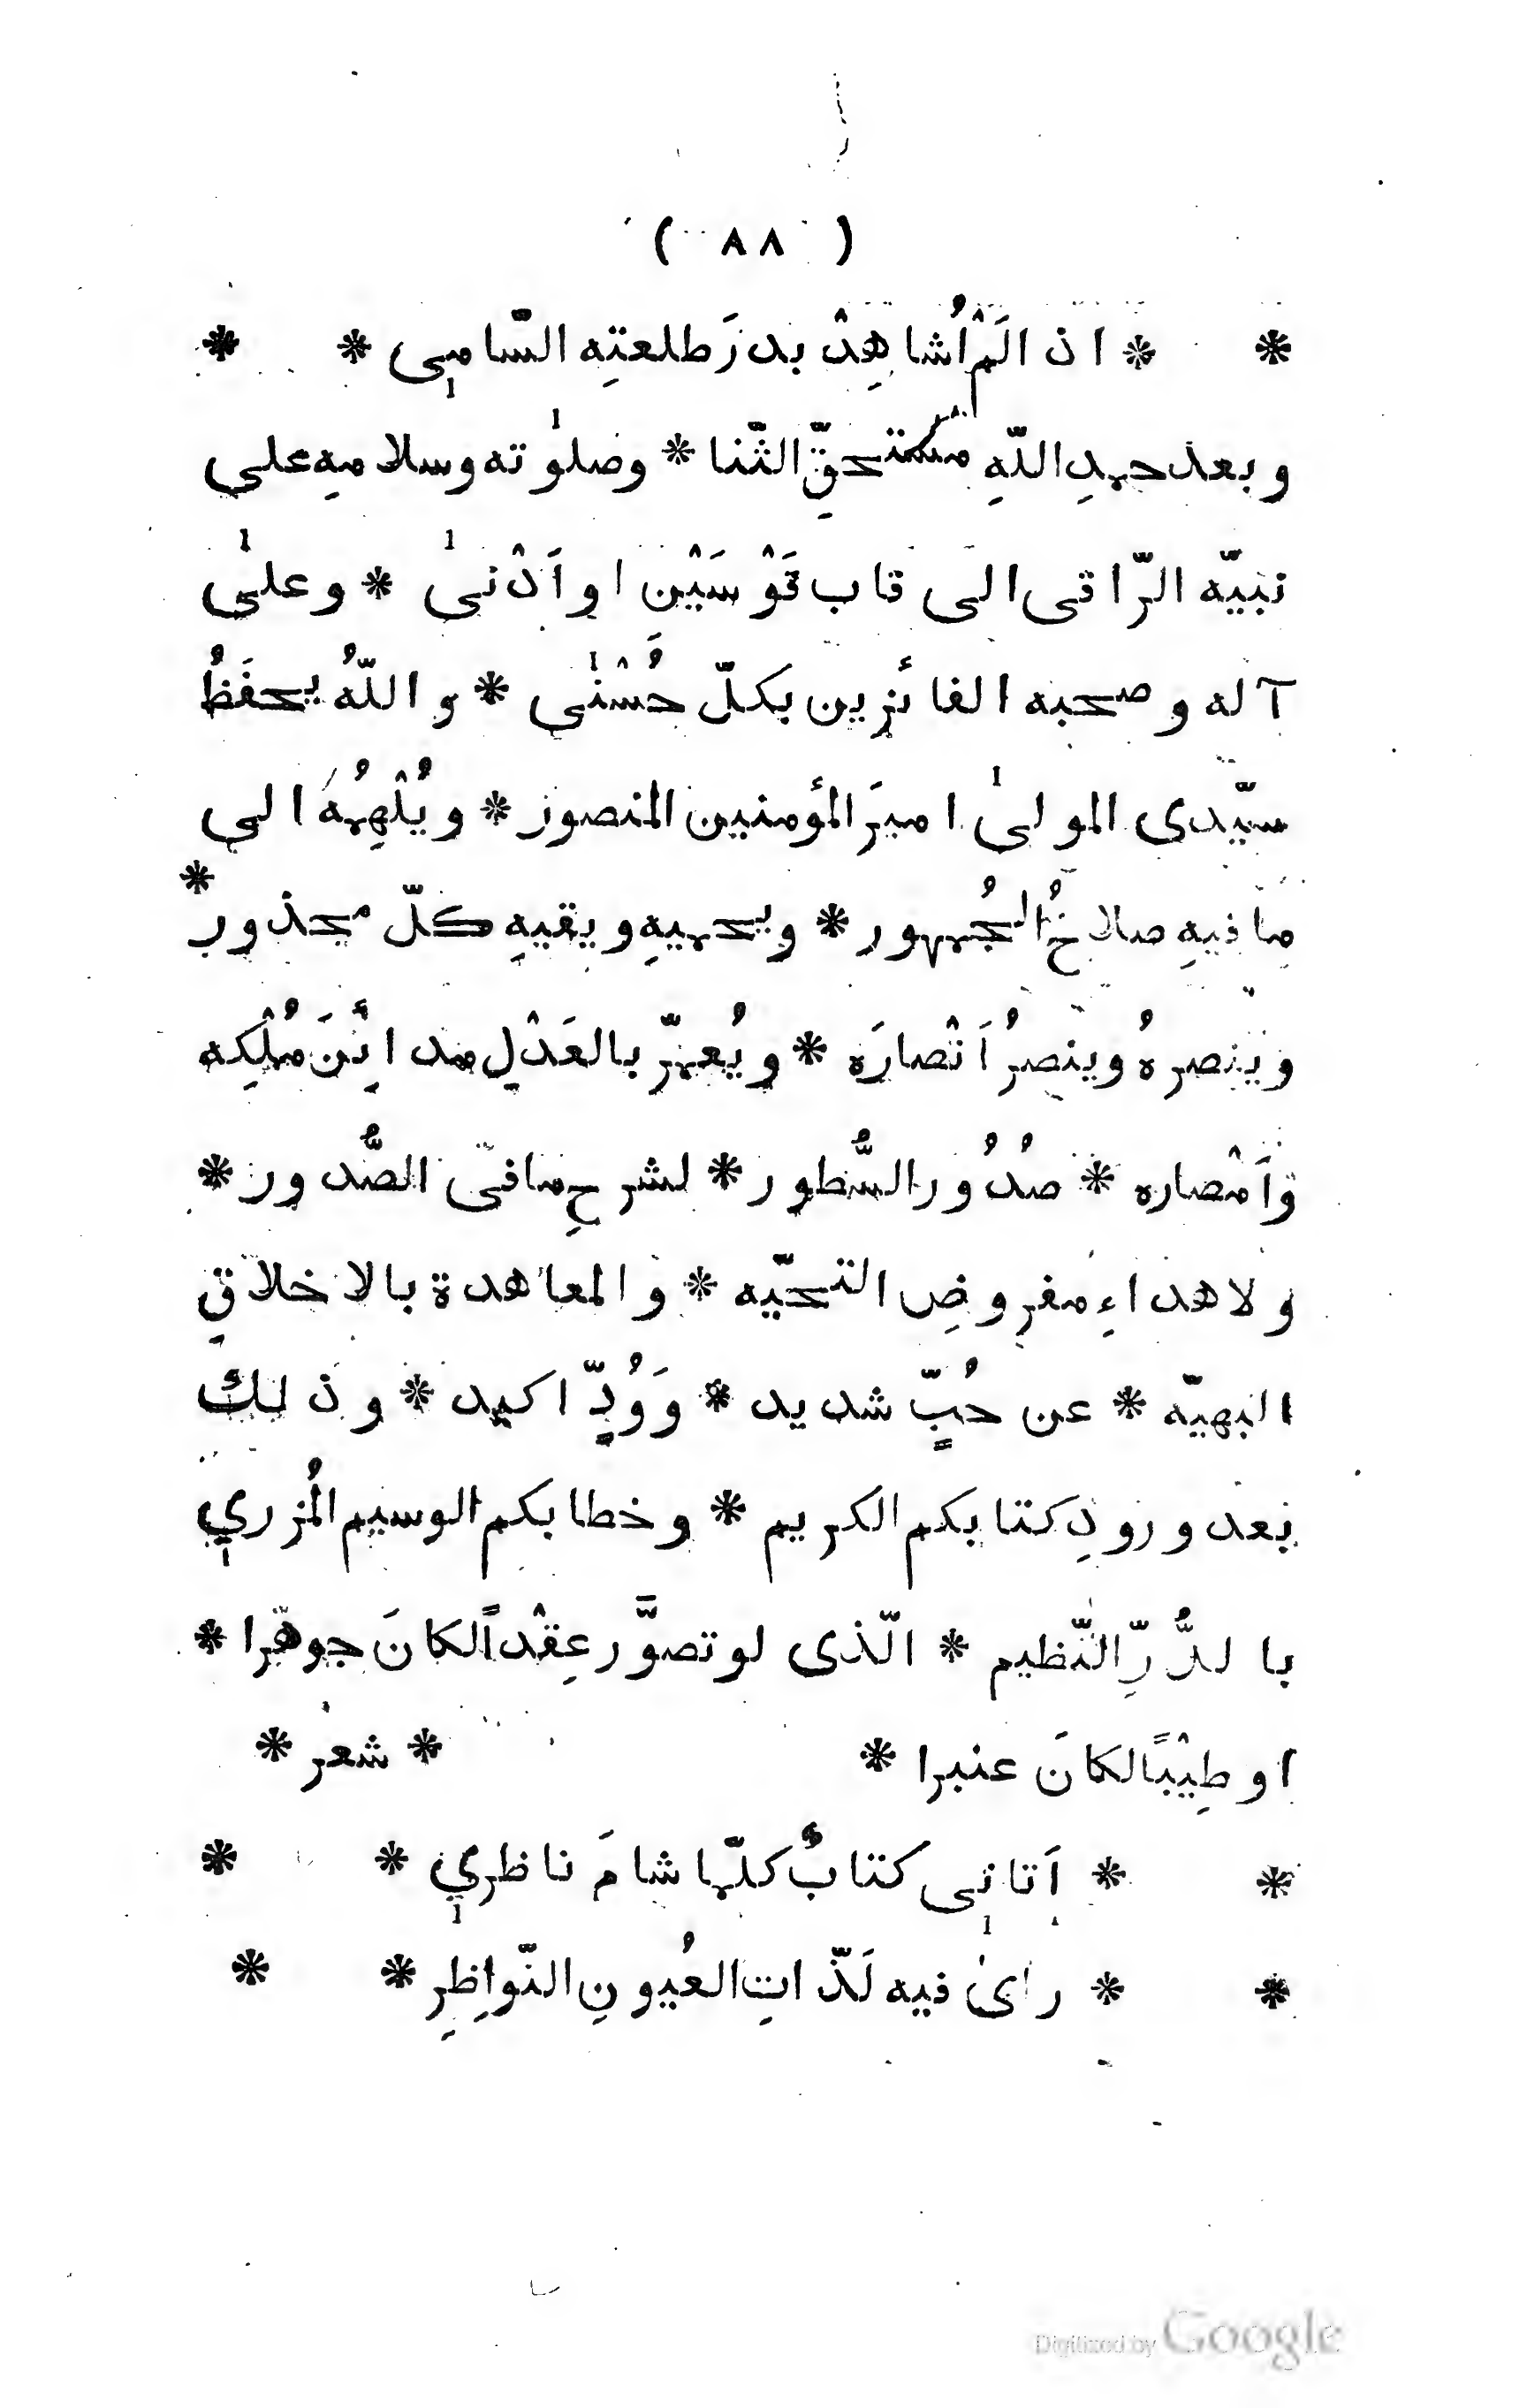 ( ٨٨ )
* * اذ الَمْ اُشاهِدْ بدرَ طلعتِه السّامى * *
وبعد حمدِ اللّهِ مستحقِّ الثّنا * وصلوٰته وسلامهِ على
نبيّه الرّاقى الى قاب قَوْسَيْن او اَدْنىٰ * وعلىٰ
آله وصحبه الفائزين بكلّ حُسْنٰى * واللّهُ يحفَظُ
سيّدى المولىٰ اميرَ المؤمنين المنصور * ويُلْهِمُهَ الى
ما فيهِ صلاحُ الجُمهور * ويحميهِ ويقيهِ كلّ محذور *
وينصرهُ وينصرُ اَنْصارَه * ويُعمّر بالعَدْلِ مدائِنَ مُلْكِه
واَمْصاره * صُدُور السُّطور * لشرحِ ما فى الصُّدور *
ولاهداءِ مفروضِ التحيّه * والمعاهدة بالاخلاقِ
البهيّه * عن حُبٍّ شديد * وَوُدٍّ اكيد * وذلك
بعد ورودِ كتابكم الكريم * وخطابكم الوسيم المُزري
بالدُّرِّ النّظيم * الّذى لو تصوَّر عِقْداً لكانَ جوهرا *
او طِيْبًا لكانَ عنبرا * * شعر *
* * اَتانى كتابٌ كلّما شامَ ناظري * *
* * راىٰ فيه لَذّاتِ العُيونِ النّواظِرِ * *
Digitized by Google